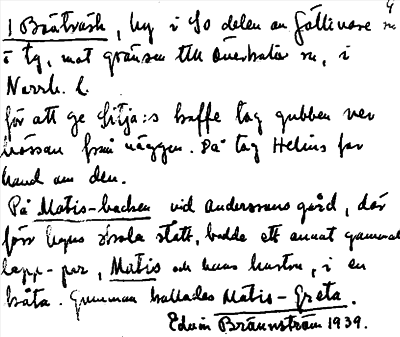 4
I Bråtträsk, by i SO delen av Gällivare sn
o tg, mot gränsen till Överkalix sn, i
Norrb. l.
för att ge Litja:s kaffe tog gubben ner
bössan från väggen. Då tog Helins far
hand om den.
På Matis-backen vid Anderssons gård, där
förr byns skola stått, bodde ett annat gammalt
lapp-par, Matis och hans hustru, i en
kåta. Gumman kallades Matis-Greta.
Edvin Brännström 1939.